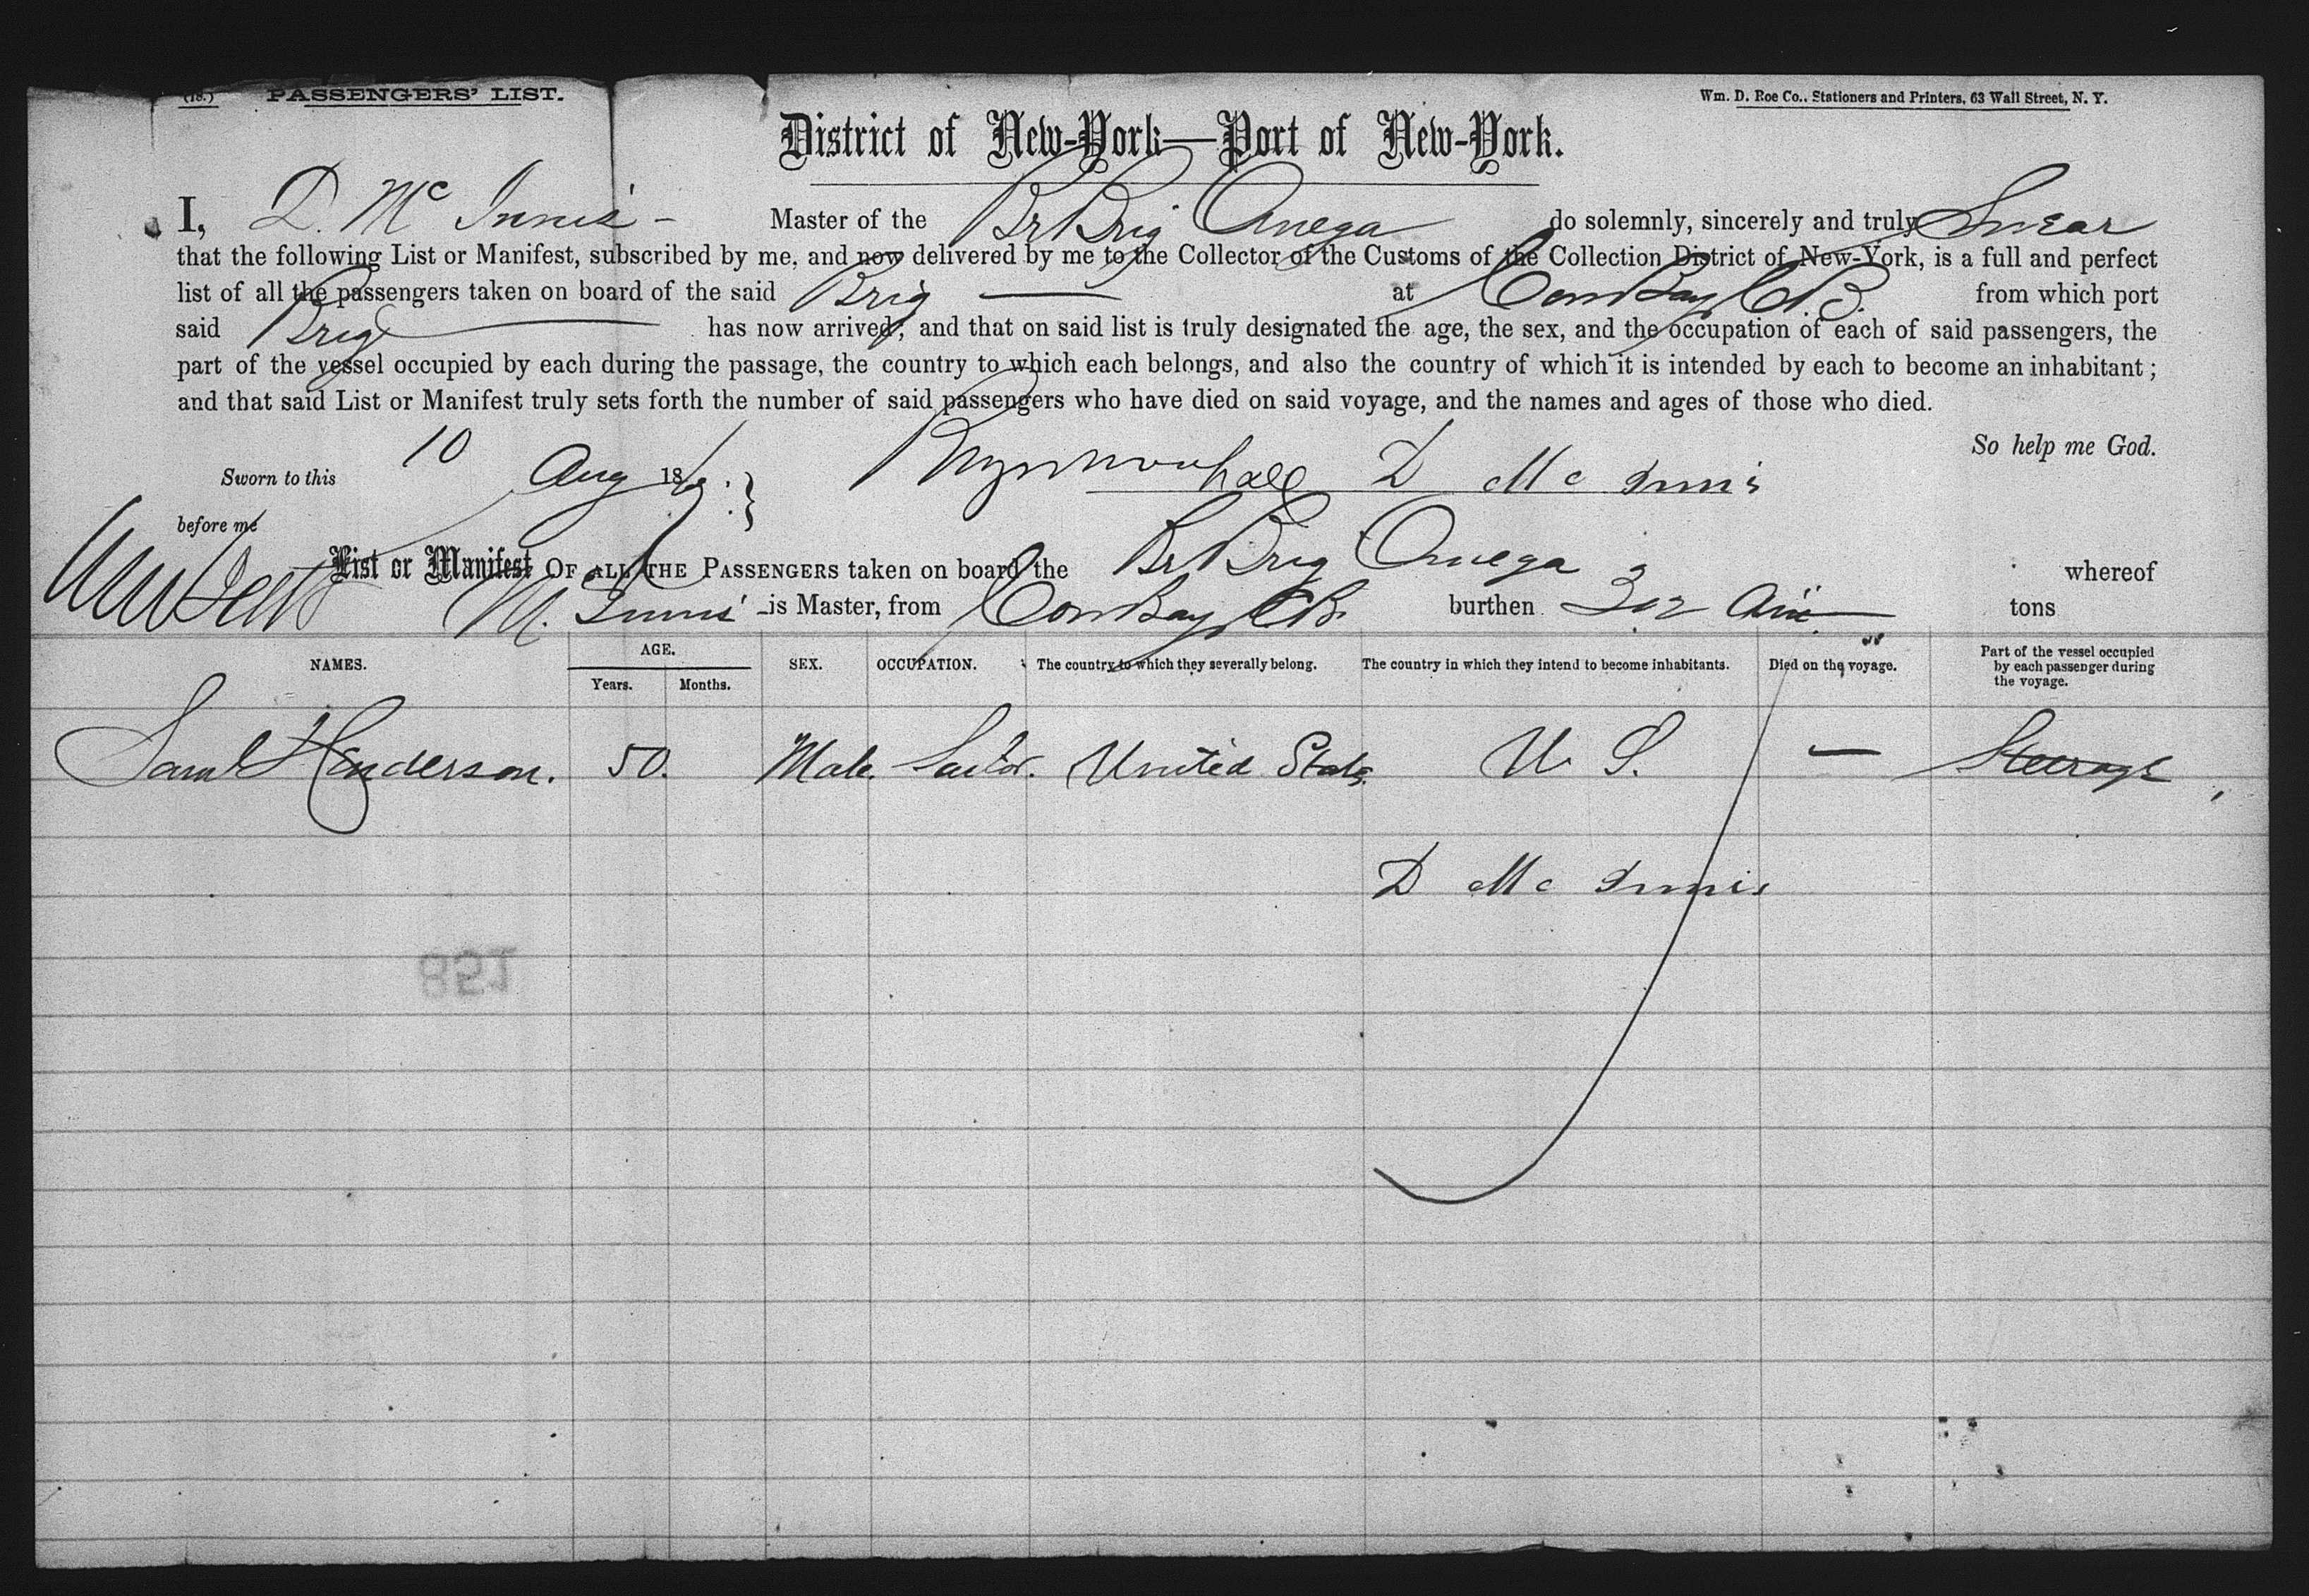 (18.) PASSENGERS' LIST.
Wm. D. Roe Co., Stationers and Printers, 63 Wall Street, N. Y.
District of New-York—Port of New-York.
I, D. Mc Innis - Master of the Br Brig Omega do solemnly, sincerely and truly Swear
that the following List or Manifest, subscribed by me, and now delivered by me to the Collector of the Customs of the Collection District of New-York, is a full and perfect
list of all the passengers taken on board of the said Brig — at Cow Bay C.B. from which port
said Brig — has now arrived; and that on said list is truly designated the age, the sex, and the occupation of each of said passengers, the
part of the vessel occupied by each during the passage, the country to which each belongs, and also the country of which it is intended by each to become an inhabitant;
and that said List or Manifest truly sets forth the number of said passengers who have died on said voyage, and the names and ages of those who died.
So help me God.
Sworn to this 10 Aug 18 } D Mc Innis
before me
List or Manifest OF ALL THE PASSENGERS taken on board the Br Brig Omega whereof
Mc Innis - is Master, from Cow Bay CB. burthen 302 tons
NAMES. AGE. Years. Months. SEX. OCCUPATION. The country to which they severally belong. The country in which they intend to become inhabitants. Died on the voyage. Part of the vessel occupied by each passenger during the voyage.
Saml Henderson. 50. Male. Sailor. United States. U. S. — Steerage
D Mc Innis
851